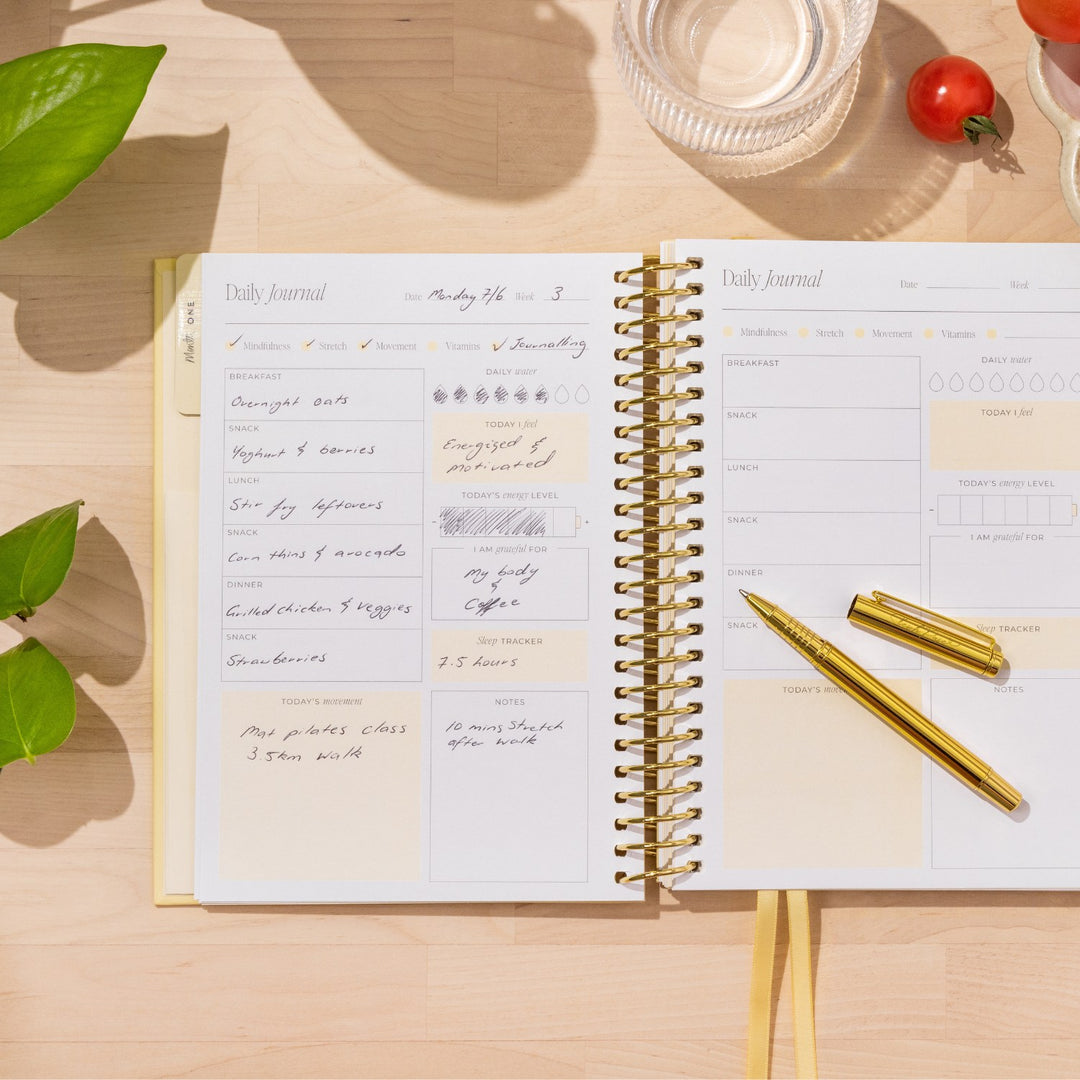 Month ONE
Daily Journal
Date Monday 7/6 Week 3
Mindfulness Stretch Movement Vitamins Journalling
BREAKFAST
Overnight oats
SNACK
Yoghurt & berries
LUNCH
Stir fry leftovers
SNACK
Corn thins & avocado
DINNER
Grilled chicken & veggies
SNACK
Strawberries
TODAY'S movement
Mat pilates class
3.5km walk
DAILY water
TODAY I feel
Energized &
motivated
TODAY'S energy LEVEL
- +
I AM grateful FOR
My body
&
Coffee
Sleep TRACKER
7.5 hours
NOTES
10 mins Stretch
after walk
Daily Journal
Date Week
Mindfulness Stretch Movement Vitamins
BREAKFAST
SNACK
LUNCH
SNACK
DINNER
SNACK
TODAY'S movement
DAILY water
TODAY I feel
TODAY'S energy LEVEL
-
I AM grateful FOR
Sleep TRACKER
NOTES